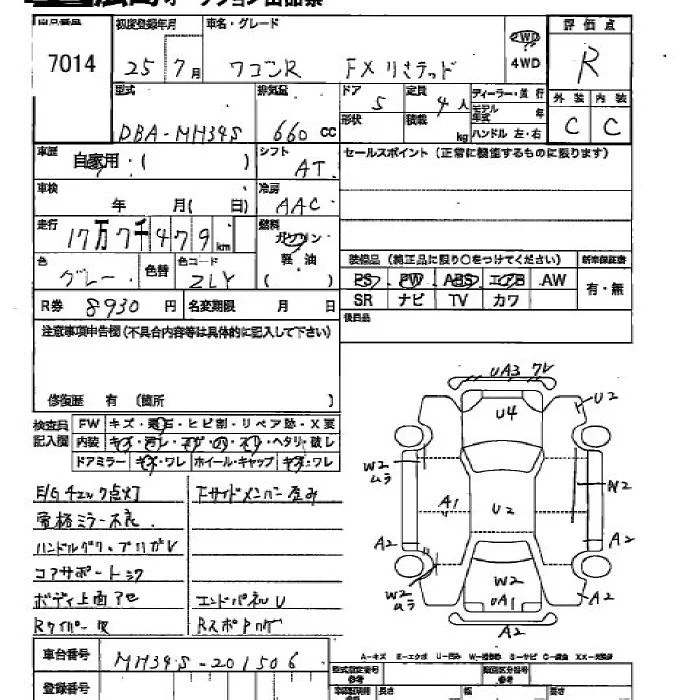 出品番号 初度登録年月 車名・グレード 評価点
7014 25 7月 ワゴンR FXリミテッド 2WD 4WD R
型式 排気量 ドア 定員 ディーラー・並行 外装 内装
DBA-MH34S 660 CC 5 4人 モデル年式 年 C C
形状 積載 kg ハンドル 左・右
車歴 自家用・( ) シフト AT セールスポイント (正常に機能するものに限ります)
車検 年 月( 日) 冷房 AAC
走行 17万7千479km 燃料 ガソリン 軽油 ( )
色 グレー 色替 色コード ZLY
装備品 (純正品に限り○をつけてください) 新車保証書
PS PW ABS エアB AW 有・無
SR ナビ TV カワ
R券 8930円 名変期限 月 日
後日品
注意事項申告欄(不具合内容等は具体的に記入して下さい)
修復歴 有 (箇所 )
検査員記入欄 FW キズ・飛石・ヒビ割・リペア跡・X要
内装 キズ・汚レ・コゲ・穴・スレ・ヘタリ・破レ
ドアミラー キズ・ワレ ホイール・キャップ キズ・ワレ
E/Gチェック点灯 下サイドメンバー歪み
骨格ミラー不良
コアサポート
ボディ上面アセ エンドパネルU
Rワイパー
車台番号 MH34S-201506
登録番号
UA3 ワレ
U4
U2
W2 ムラ
W2
A1
U2
A2
A2
W2 ムラ
W2
UA1
A2
A2
A-キズ E-エクボ U-凹み W-補修跡 S-サビ C-腐食 XX-交換済
型式指定番号 参考 類別区分番号 参考
長さ 幅 高さ